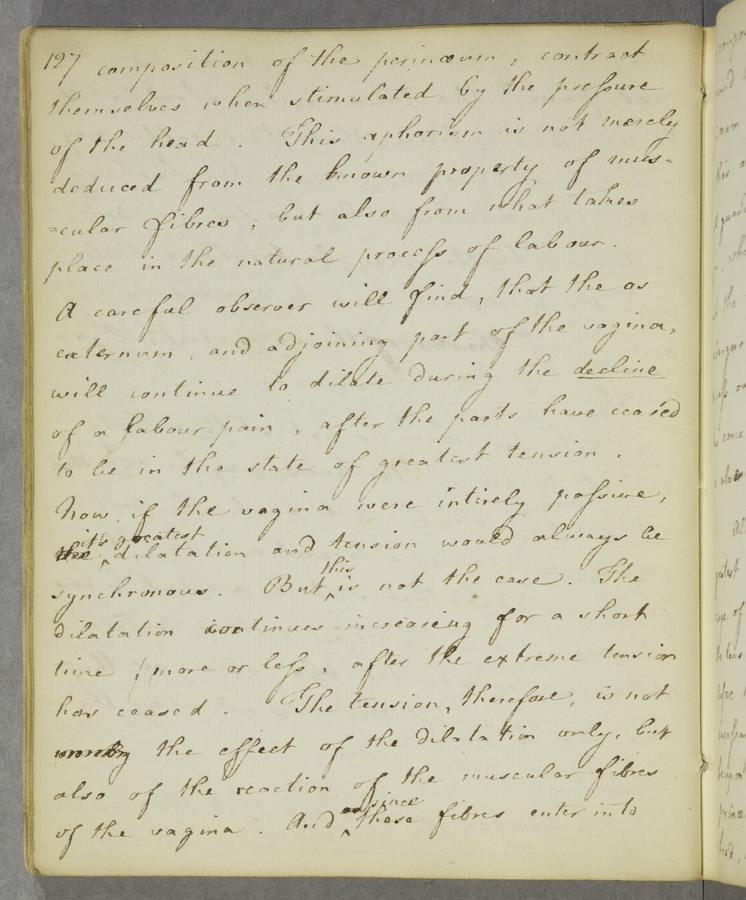 127 composition of the perinœum, contract
themselves when stimulated by the pressure
of the head. This aphorism is not merely
deduced from the known property of mus=
=cular fibres; but also from what takes
place in the natural process of labour.
A careful observer will find, that the os
externum, and adjoining part of the vagina,
will continue to dilate during the decline
of a labour-pain, after the parts have ceased
to be in the state of greatest tension.
Now, if the vagina were intirely passive,
its greatest
the dilatation and tension would always be
this
synchronous. But is not the case. The
dilatation continues increasing for a short
time, more or less, after the extreme tension
has ceased. The tension, therefore, is not
merely the effect of the dilatation only, but
also of the reaction of the muscular fibres
since
of the vagina. And these fibres enter into